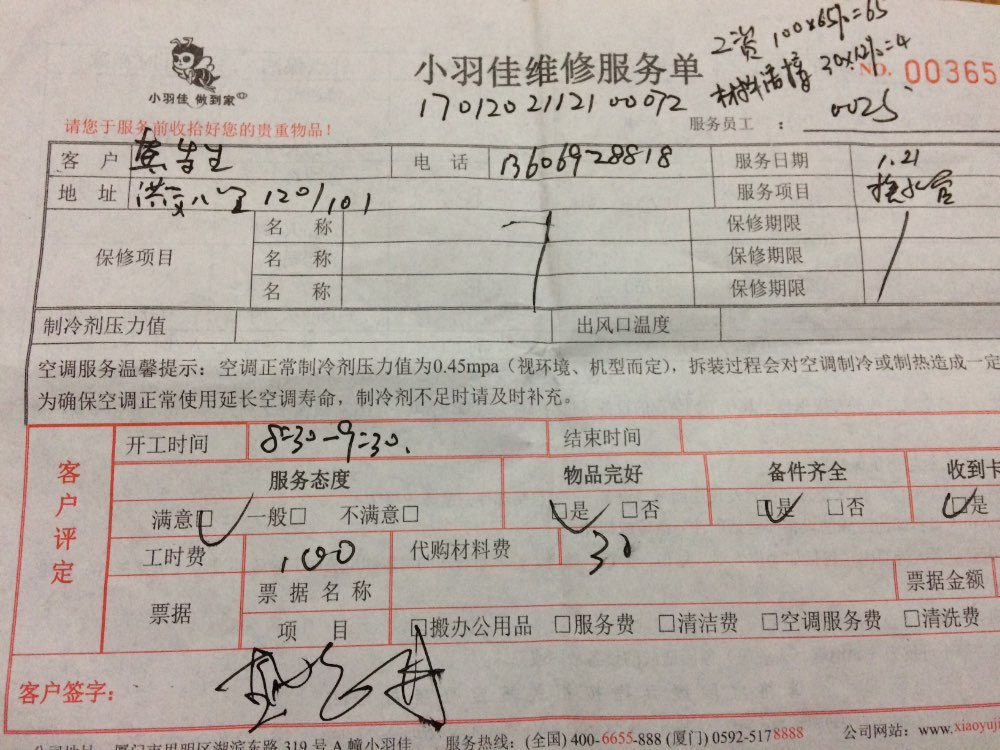 工资 100×65%=65
小羽佳 做到家
小羽佳维修服务单
材料 30×12%=4
NO. 00365
1701202112100072
请您于服务前收拾好您的贵重物品!
服务员工 : 0025
客 户 黄先生 电 话 13606928818 服务日期 1.21
地 址 洪文八里 120/101 服务项目 换水管
保修项目
名 称 保修期限
名 称 保修期限
名 称 保修期限
制冷剂压力值 出风口温度
空调服务温馨提示：空调正常制冷剂压力值为0.45mpa（视环境、机型而定），拆装过程会对空调制冷或制热造成一定
为确保空调正常使用延长空调寿命，制冷剂不足时请及时补充。
客户评定
开工时间 8:30-9:30. 结束时间
服务态度 物品完好 备件齐全 收到卡
满意□ 一般□ 不满意□ □是 □否 □是 □否 □是
工时费 100 代购材料费 30
票据 票据名称 票据金额
项 目 □搬办公用品 □服务费 □清洁费 □空调服务费 □清洗费
客户签字：
公司地址：厦门市思明区湖滨东路 319 号 A 幢小羽佳 服务热线：(全国) 400-6655-888 (厦门) 0592-5178888 公司网站：www.xiaoyuji